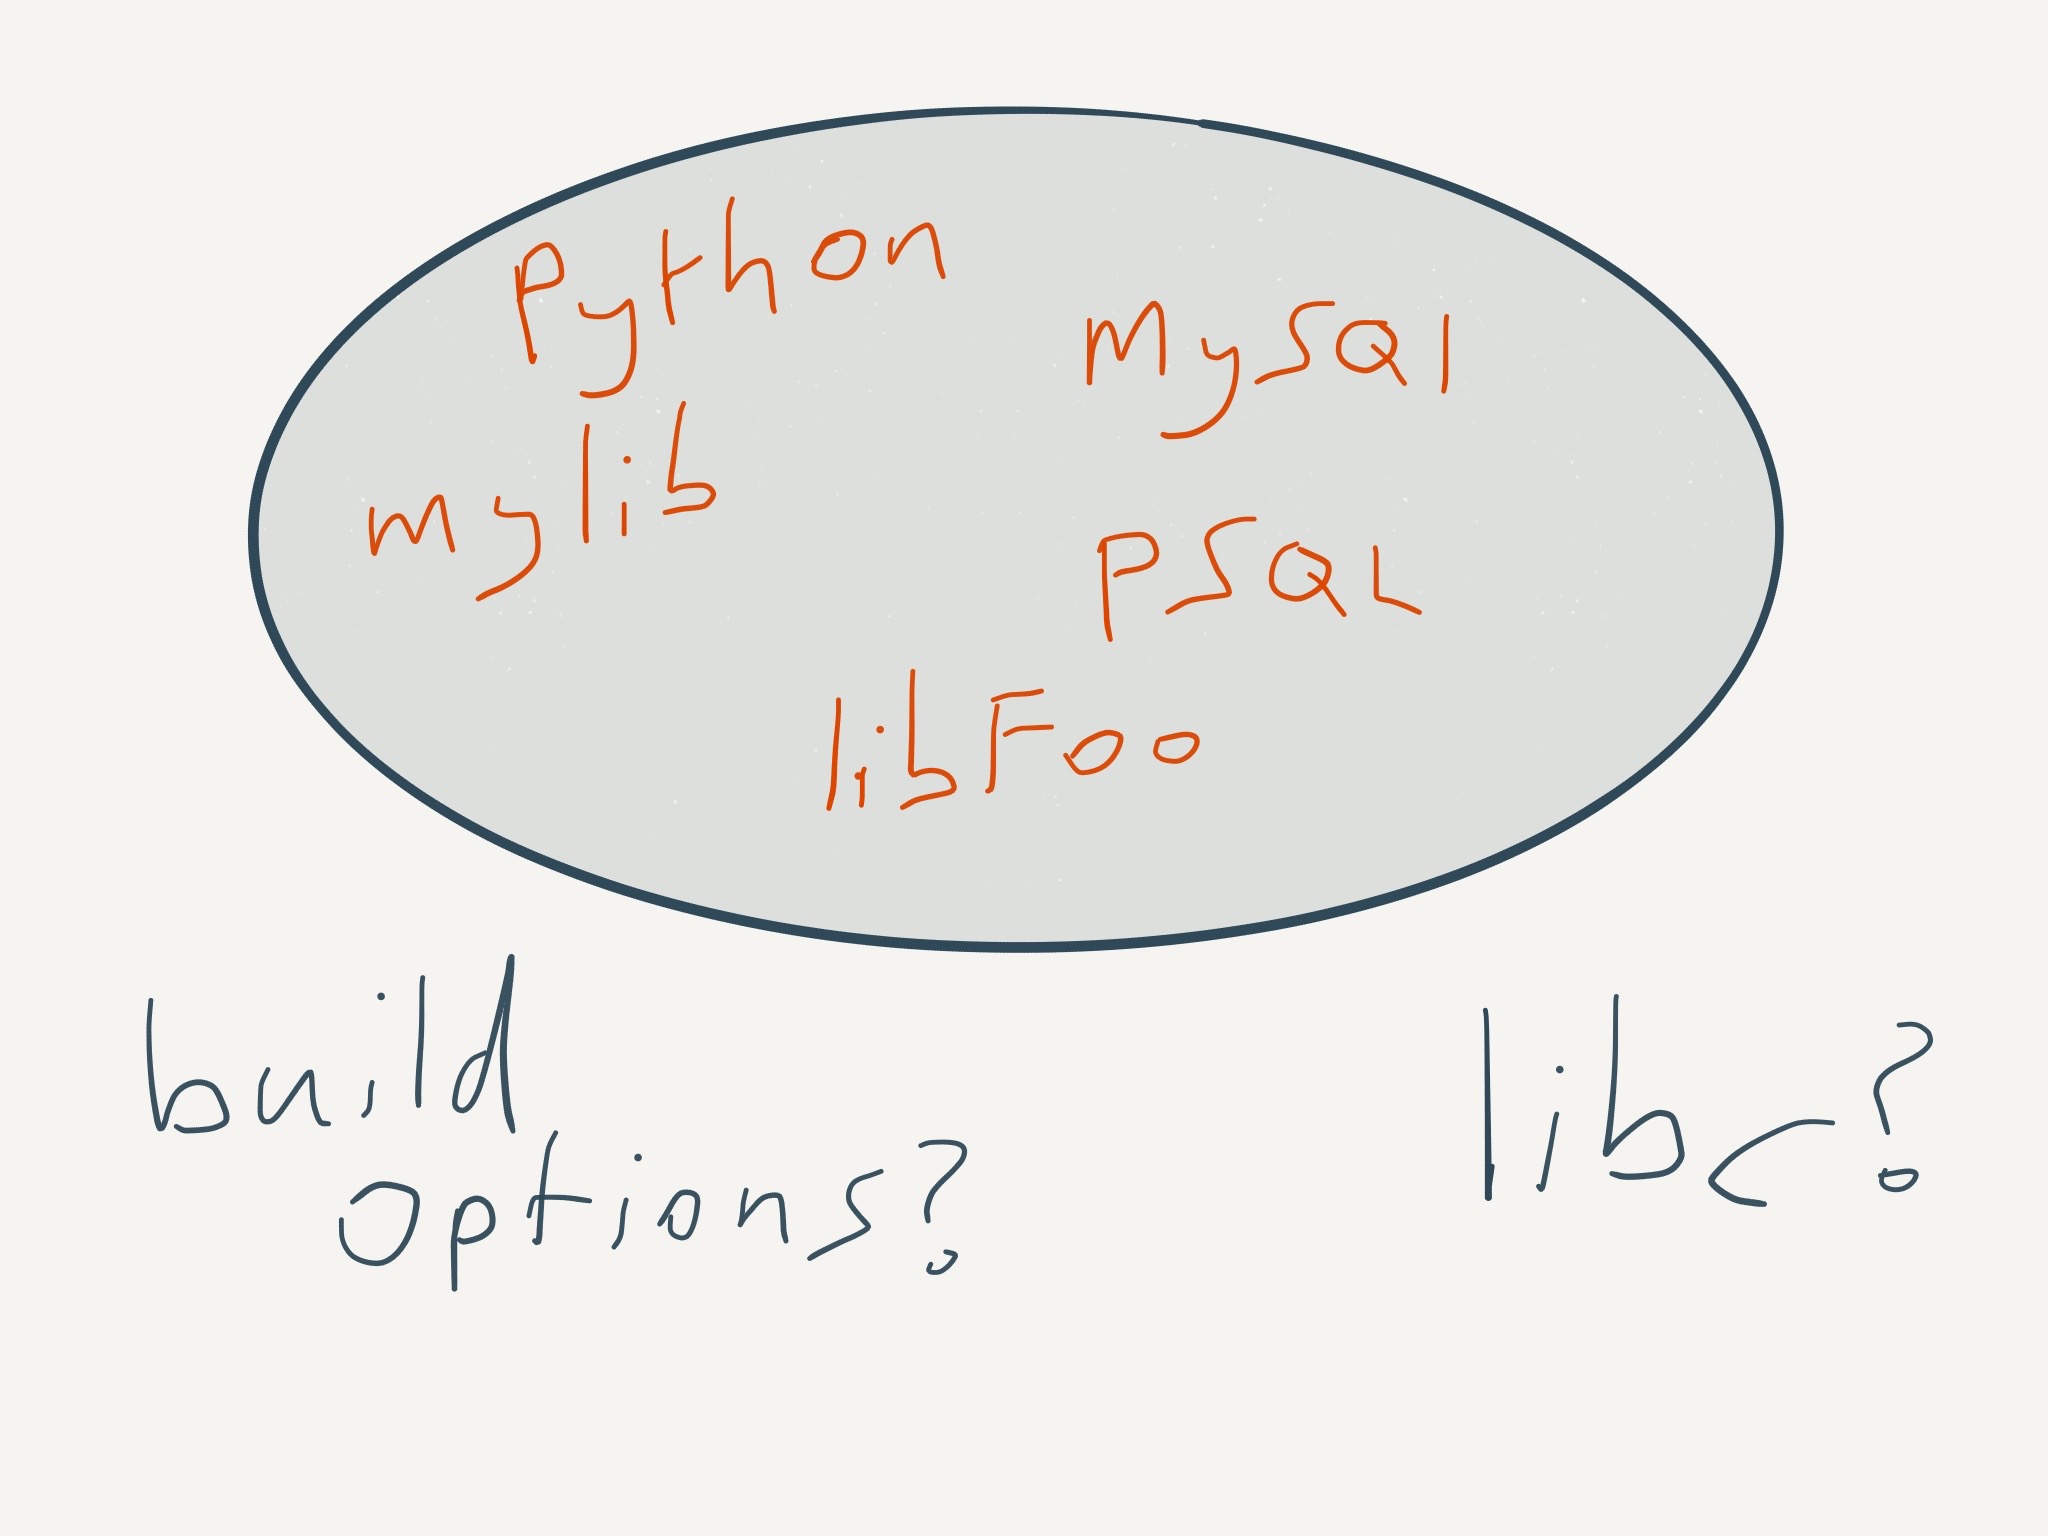 Python
MySQl
mylib
PSQL
libFoo
build
options?
libc?